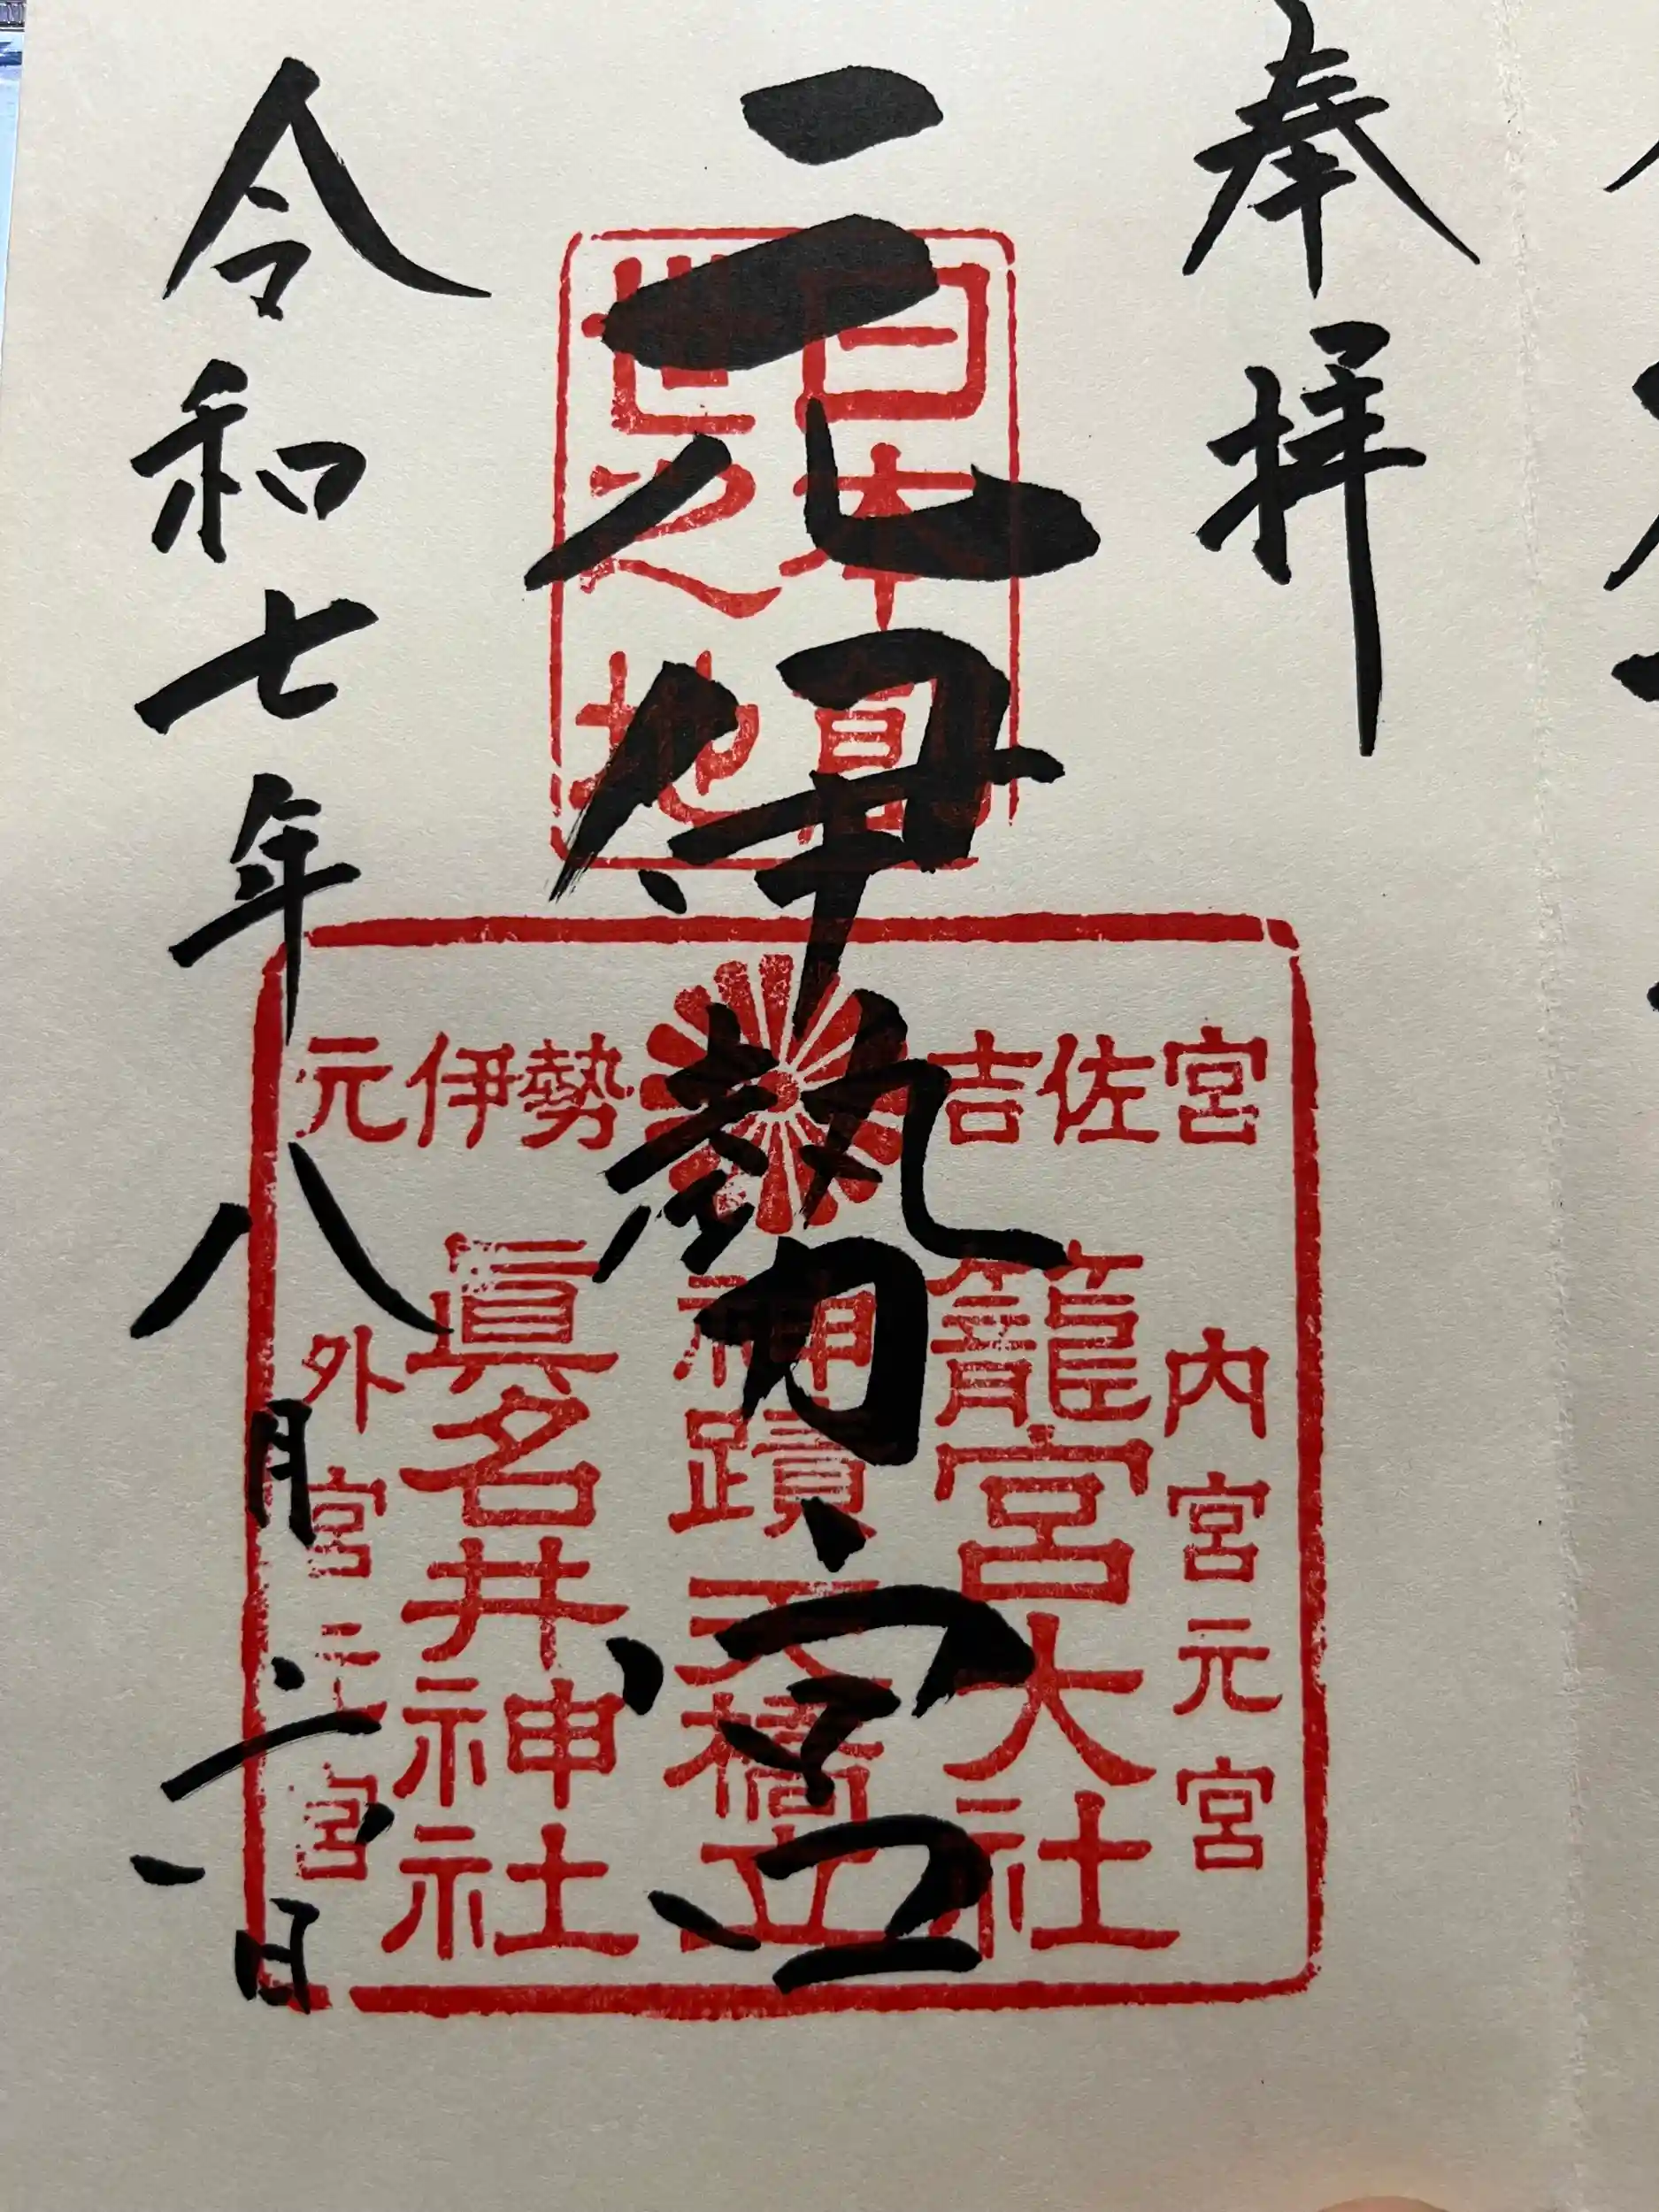 奉拝
元伊勢籠宮
令和七年八月六日
日本
之地
元伊勢 吉佐宮
内宮元宮
籠宮大社
神蹟天橋立
眞名井神社
外宮元宮